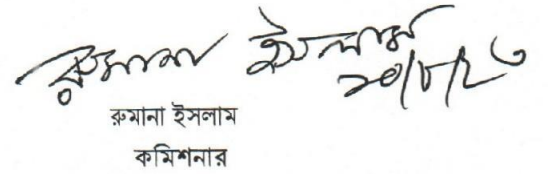 রুমানা ইসলাম
২০/৮/২৩
রুমানা ইসলাম
কমিশনার